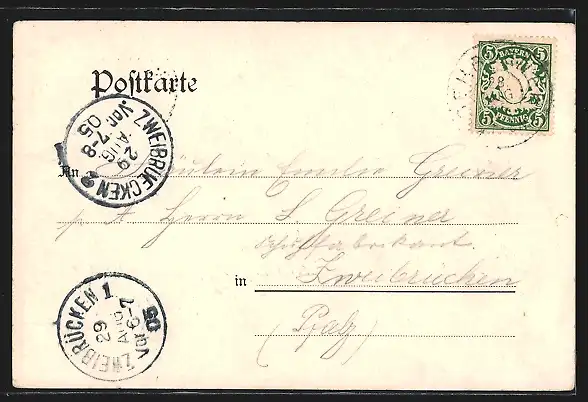 Postkarte
5 BAYERN 5
5 PFENNIG 5
ZWEIBRUECKEN 2
29
AUG
7-8
Vor.
05
An
Fräulein Emilie Greiner
p/A Herrn L Greiner
Schuhfabrikant.
in Zweibrücken
(Pfalz)
ZWEIBRÜCKEN 1
29
AUG
6-7
VOR
05